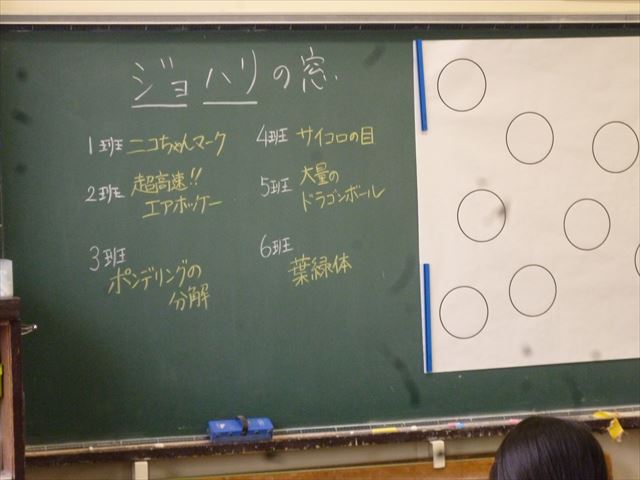 ジョハリの窓
1班 ニコちゃんマーク
2班 超高速!!
エアホッケー
3班
ポンデリングの
分解
4班 サイコロの目
5班 大量の
ドラゴンボール
6班
葉緑体